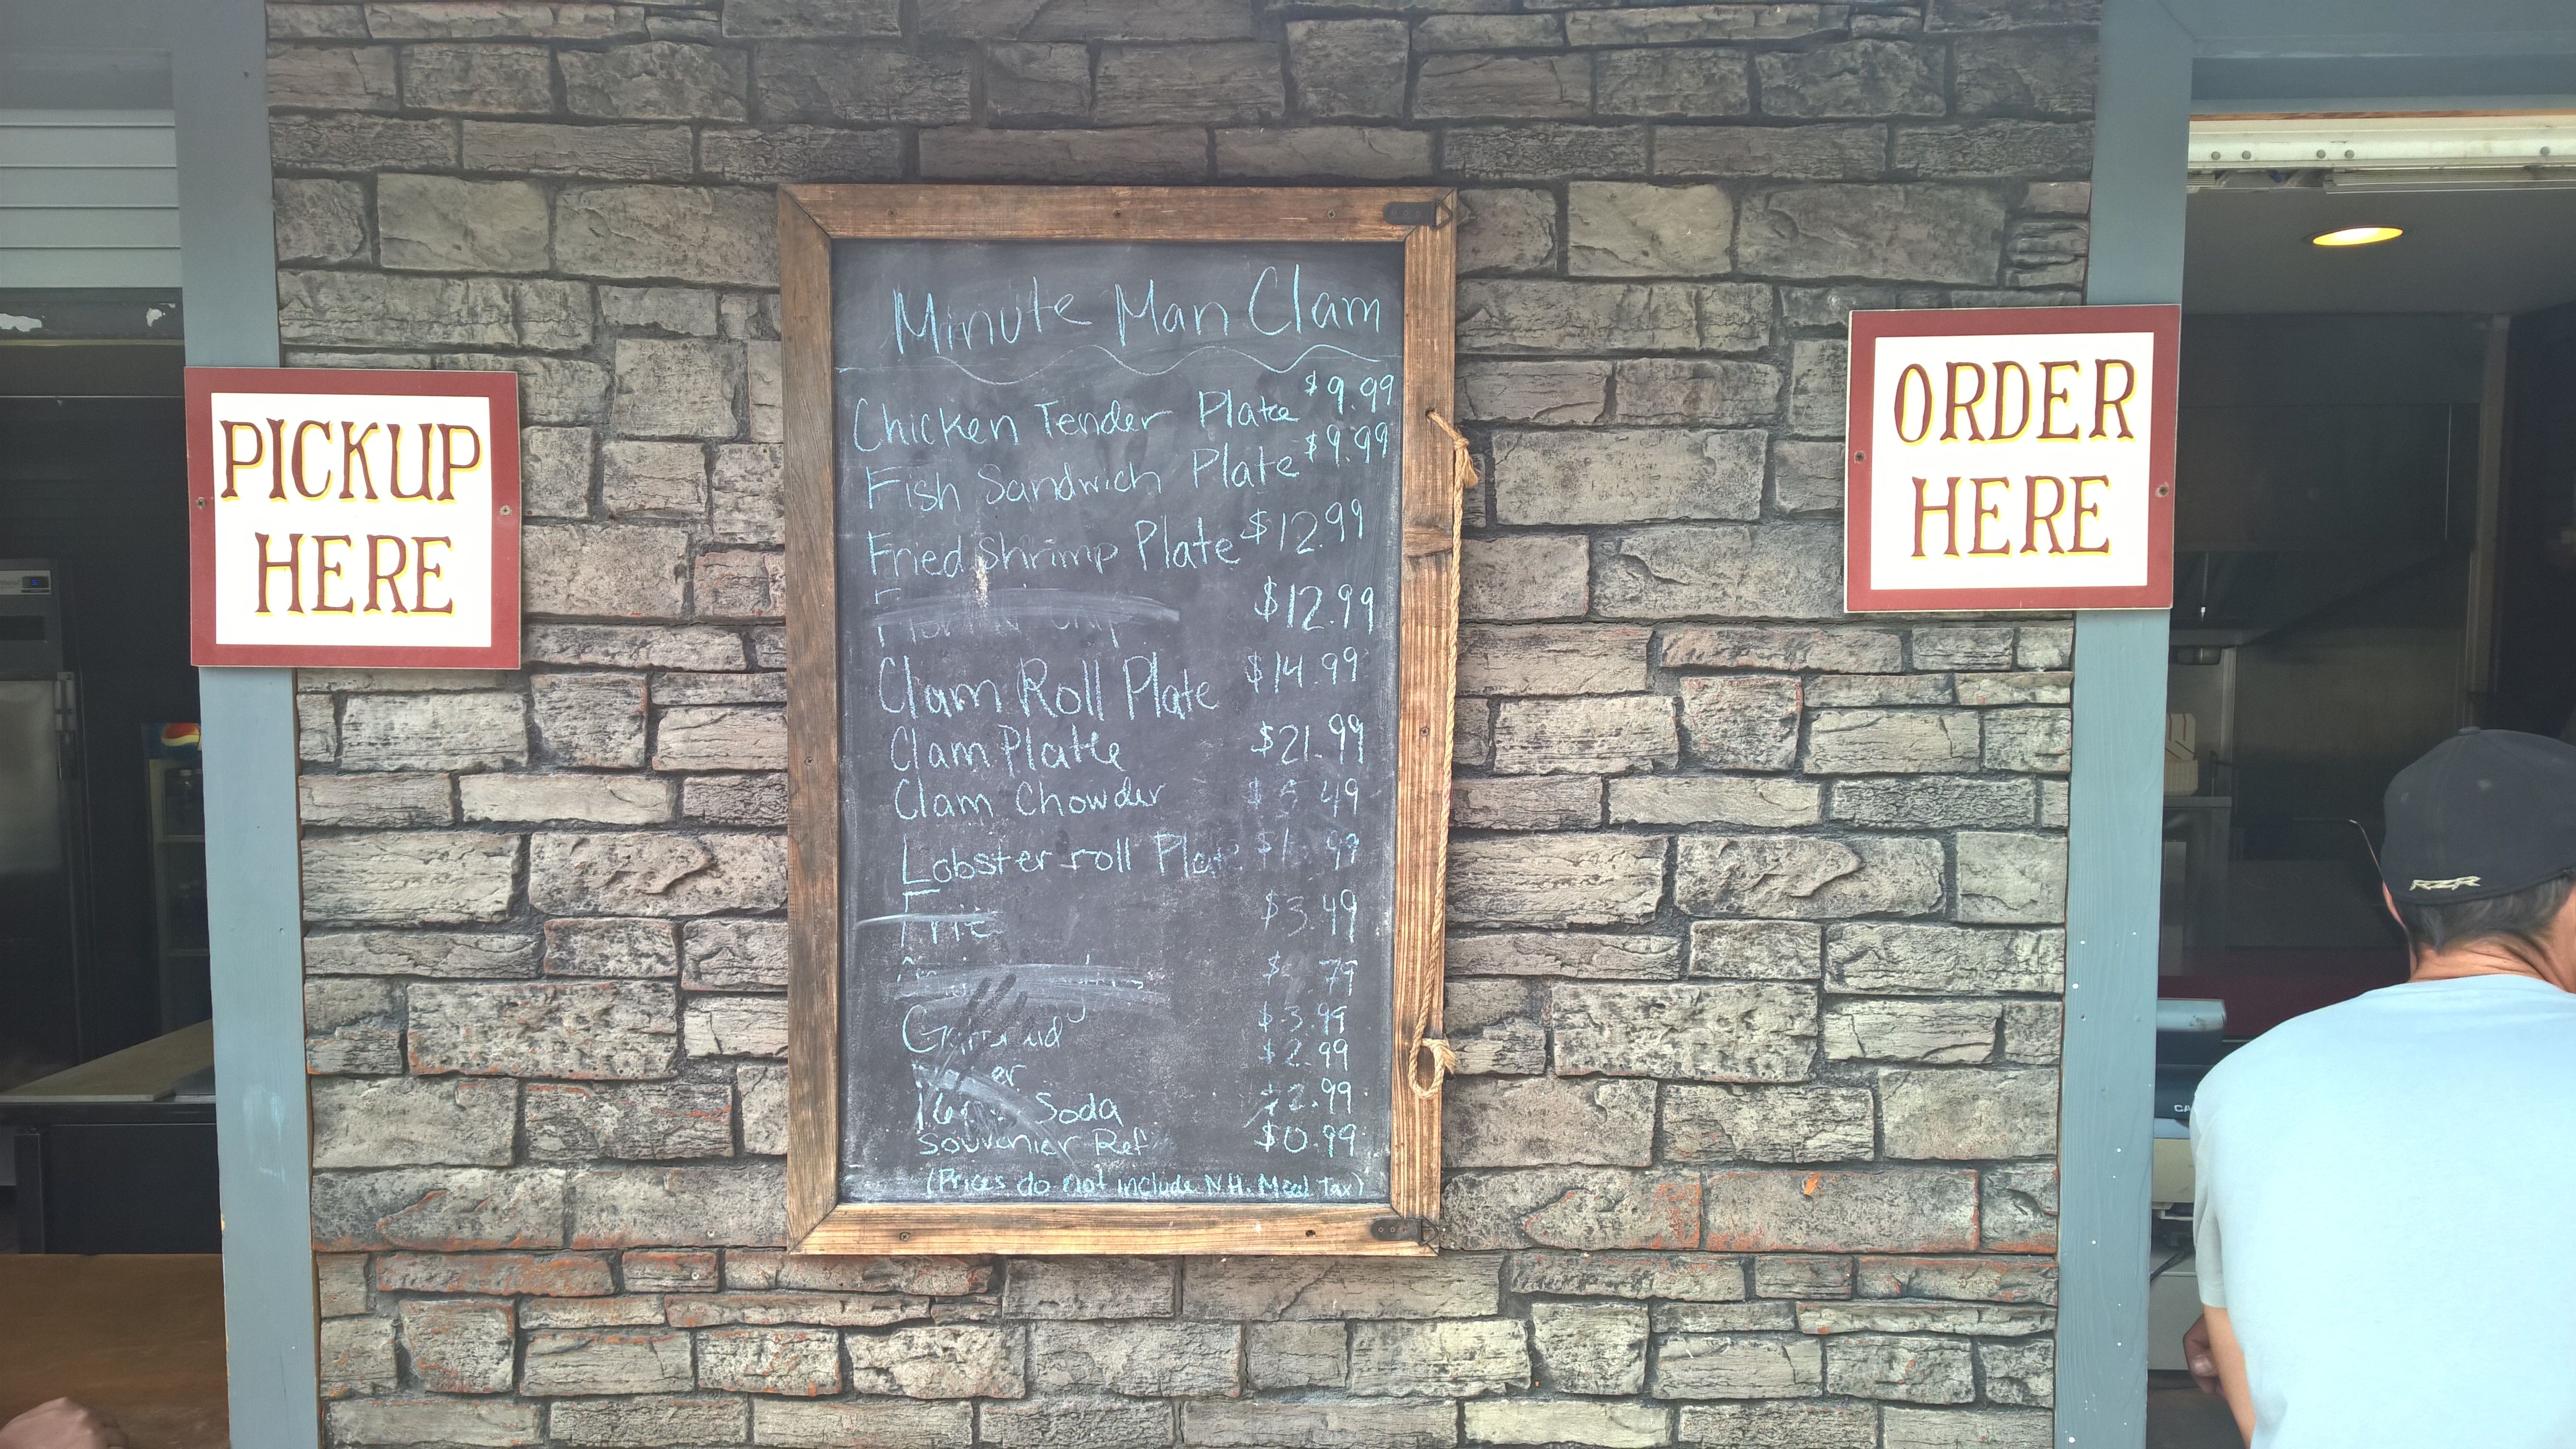 Minute Man Clam
Chicken Tender Plate $9.99
Fish Sandwich Plate $9.99
Fried Shrimp Plate $12.99
$12.99
Clam Roll Plate $14.99
Clam Plate $21.99
Clam Chowder $5.49
Lobster roll Plate
$3.49
$3.99
$2.99
Soda $2.99
Souvenier Ref $0.99
(Prices do not include N.H. Meal Tax)
PICKUP
HERE
ORDER
HERE
RZR